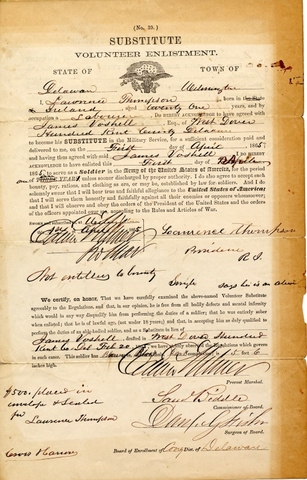 (No. 39.)
SUBSTITUTE
VOLUNTEER ENLISTMENT.
STATE OF TOWN OF
Delaware Wilmington
I, Lawrence Thompson born in the State
of Ireland aged twenty One years, and by
occupation a Labourer Do HEREBY ACKNOWLEDGE to have agreed with
James Voshell Esq., of West Dover
Hundred Kent County Delaware
to become his SUBSTITUTE in the Military Service, for a sufficient consideration paid and
delivered to me, on the First day of April 1865
and having thus agreed with said James Voshell I DO HEREBY
ACKNOWLEDGE to have enlisted this First day of April
1865 to serve as a Soldier in the Army of the United States of America, for the period
of YEARS unless sooner discharged by proper authority. I do also agree to accept such
bounty, pay, rations, and clothing as are, or may be, established by law for soldiers. And I do
solemnly swear that I will bear true and faithful allegiance to the United States of America;
that I will serve them honestly and faithfully against all their enemies or opposers whomsoever;
and that I will observe and obey the orders of the President of the United States, and the orders of
the officers appointed over me, according to the Rules and Articles of War.
Lawrence Thompson
Providence
R. I.
Not entitled to bounty
Single says he is an alien
We certify, on honor, That we have carefully examined the above-named Volunteer Substitute
agreeably to the Regulations, and that, in our opinion, he is free from all bodily defects and mental infirmity
which would in any way disqualify him from performing the duties of a soldier; that he was entirely sober
when enlisted; that he is of lawful age, (not under 18 years;) and that, in accepting him as duly qualified to
perform the duties of an able-bodied soldier, and as a Substitute in lieu of
James Voshell drafted in West Dover Hundred
Kent Co Del Feb 20 we have strictly observed the Regulations which govern
in such cases. This soldier has eyes, hair, complexion, is 5 feet 6
inches high.
Provost Marshal.
Commissioner of Board.
Surgeon of Board.
$500. placed in
envelope & sealed
for
Lawrence Thompson
Board of Enrolment of Cong Dist. of Delaware